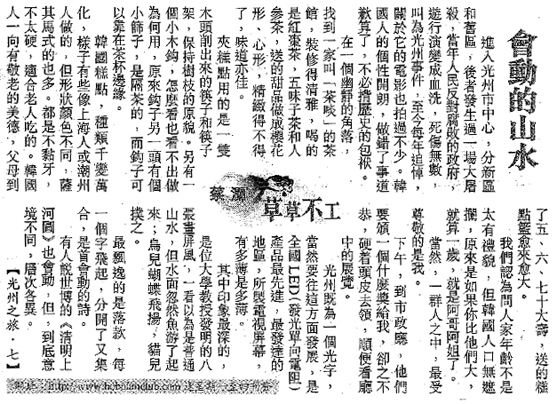 會動的山水
進入光州市中心，分新區
和舊區，後者發生過一場大屠
殺，當年人民反對腐敗的政府，
遊行演變成血洗，死傷無數，
叫為光州事件，至今每年追悼，
關於它的電影也拍過不少。韓
國人的個性開朗，做錯了事道
歉算了，不必揹歷史的包袱。
在一個幽靜的角落，
找到一家叫「茶啖」的茶
館，裝修得清雅，喝的
是紅棗茶、五味子茶和人
參茶，送的甜品做成櫻花
形、心形，精緻得不得
了，味道亦佳。
夾糕點用的是一雙
木頭削出來的筷子和筷子
架，保持樹枝的原貌。另有一
個小木鈎，怎麼看也看不出做
為何用，原來鈎子另一頭有個
小篩子，是隔茶的，而鈎子可
以靠在茶杯邊緣。
韓國糕點，種類千變萬
化，樣子有些像上海人或潮州
人做的，但形狀顏色不同，薩
其馬式的也多。都是不黏牙，
不太硬，適合老人吃的。韓國
人一向有敬老的美德，父母到
草草不工
蔡瀾
了五、六、七十大壽，送的糕
點籃愈來愈大。
我們認為問人家年齡不是
太有禮貌，但韓國人口無遮
攔，原來是如果你比他們大，
就算一歲，就是阿哥阿姐了。
當然，一群人之中，最受
尊敬的是我。
下午，到市政廳，他們
要頒一個什麼獎給我，卻之不
恭，硬着頭皮去領，順便看廳
中的展覽。
光州既為一個光字，
當然要往這方面發展，是
全國LED（發光單向電阻）
產品最先進、最發達的
地區，所製電視屏幕，
有多薄是多薄。
其中印象最深的，
是位大學教授發明的八
張畫屏風，一看以為是普通
山水，但水面忽然魚游了起
來；鳥兒蝴蝶飛揚，貓兒
撲之。
最飄逸的是落款，每
一個字飛起，分開了又集
合，是首會動的詩。
有人說世博的《清明上
河圖》也會動，但，到底意
境不同，層次各異。
【光州之旅．七】